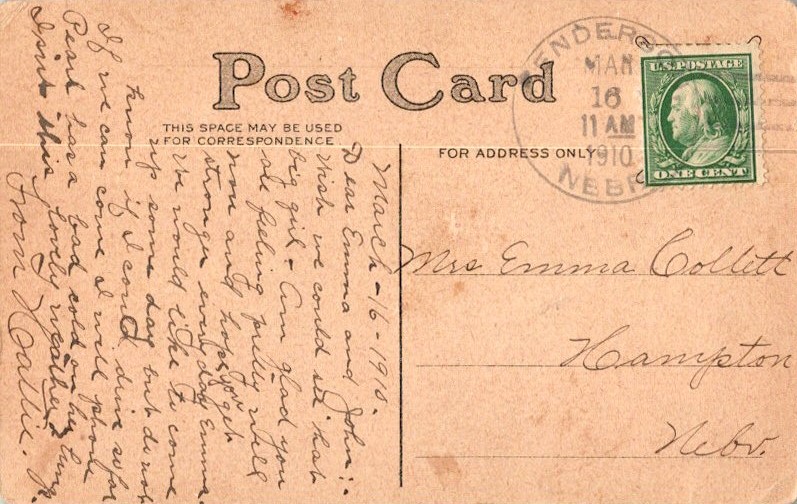 Post Card
THIS SPACE MAY BE USED
FOR CORRESPONDENCE
FOR ADDRESS ONLY
HENDERSON
MAR
16
11 AM
1910
NEBR
U.S. POSTAGE
ONE CENT
Mrs Emma Collett
Hampton
Nebr.
March-16-1910.
Dear Emma and John:-
Wish we could see that
big girl - Am glad you
are feeling pretty well
now and hope you get
stronger every day Emma.
We would like to come
up some day but do not
know if I could drive so far
If we can come I will phone
Pearl has a bad cold on her lungs
Isn't this lovely weather
From Hattie. J.